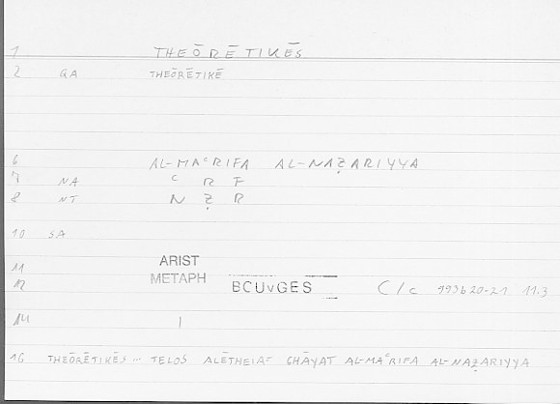 1 THEŌRĒTIKĒS
2 QA THEŌRĒTIKĒ
6 AL-MAʿRIFA AL-NAẒARIYYA
7 NA ʿ R F
8 NT N Ẓ R
10 SA
11 ARIST
METAPH
12 BCUvGES C/c 993b20-21 11.3
14 1
16 THEŌRĒTIKĒS ... TELOS ALĒTHEIA- GHĀYAT AL-MAʿRIFA AL-NAẒARIYYA